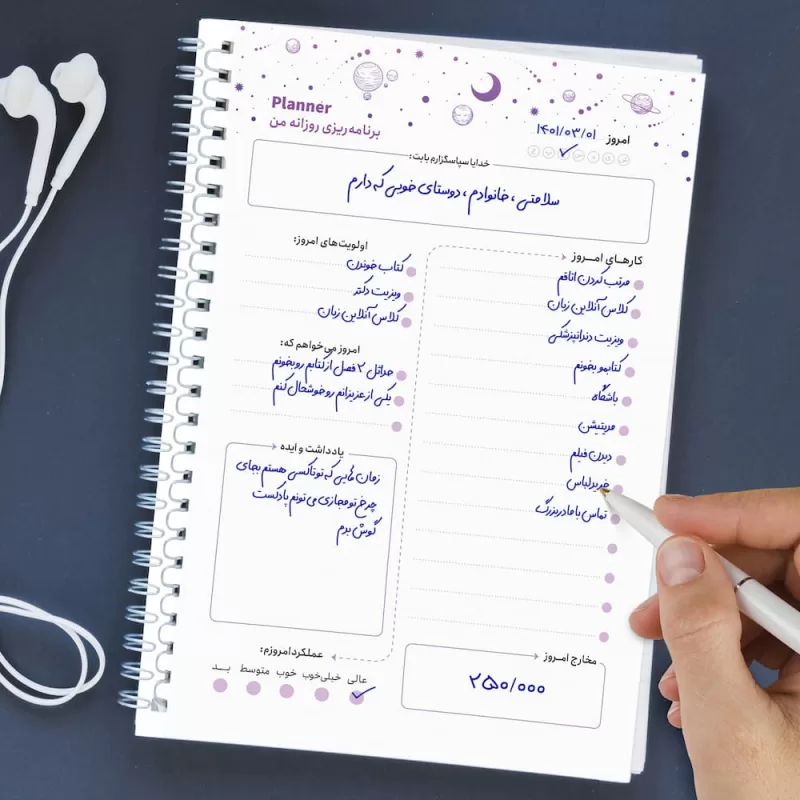 Planner
برنامه‌ریزی روزانه من
امروز ۱۴۰۱/۰۳/۰۱
خدایا سپاسگزارم بابت:
سلامتی، خانوادم، دوستای خوبی که دارم
کارهای امروز
مرتب کردن اتاقم
کلاس آنلاین زبان
ویزیت دندانپزشکی
کتابمو بخونم
باشگاه
مدیتیشن
دیدن فیلم
خرید لباس
تماس با مادربزرگ
اولویت‌های امروز:
کتاب خوندن
ویزیت دکتر
کلاس آنلاین زبان
امروز می‌خواهم که:
حداقل ۲ فصل از کتابم رو بخونم
یکی از عزیزانم رو خوشحال کنم
یادداشت و ایده
زمان هایی که تو تاکسی هستم بجای
چرخ تو مجازی می تونم پادکست
گوش بدم
عملکرد امروزم:
عالی خیلی‌خوب خوب متوسط بد
مخارج امروز
۲۵۰/۰۰۰